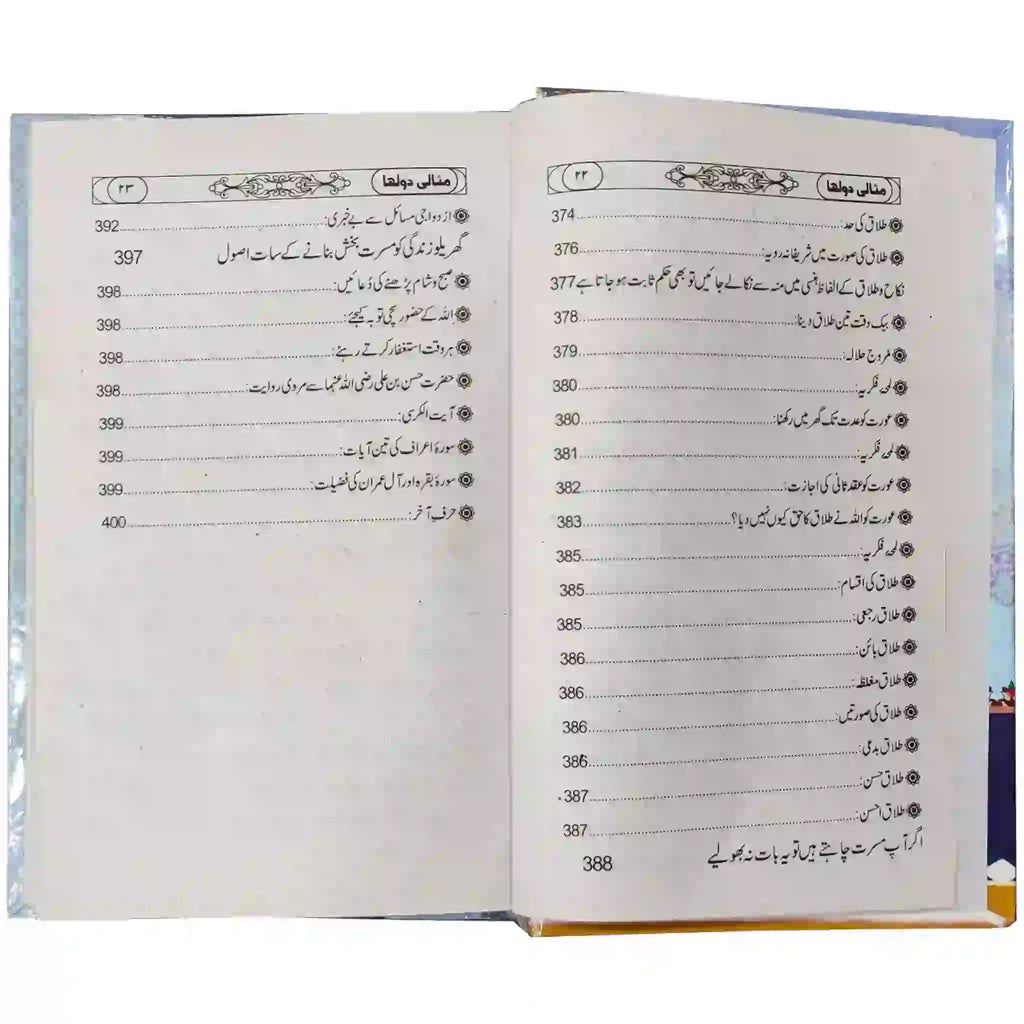 مثالی دولہا ۲۲
طلاق کی حد: 374
طلاق کی صورت میں شریفانہ رویہ: 376
نکاح و طلاق کے الفاظ ہنسی میں منہ سے نکالے جائیں تو بھی حکم ثابت ہو جاتا ہے 377
بیک وقت تین طلاق دینا: 378
مروج حلالہ: 379
لمحہ فکریہ: 380
عورت کو عدت تک گھر میں رکھنا: 380
لمحہ فکریہ: 381
عورت کو عقد ثانی کی اجازت: 382
عورت کو اللہ نے طلاق کا حق کیوں نہیں دیا؟ 383
لمحہ فکریہ: 385
طلاق کی اقسام: 385
طلاق رجعی: 385
طلاق بائن: 386
طلاق مغلظہ: 386
طلاق کی صورتیں: 386
طلاق بدعی: 386
طلاق حسن: 387
طلاق احسن: 387
اگر آپ مسرت چاہتے ہیں تو یہ بات نہ بھولیے 388
مثالی دولہا ۲۳
ازدواجی مسائل سے بے خبری: 392
گھریلو زندگی کو مسرت بخش بنانے کے سات اصول 397
صبح و شام پڑھنے کی دُعائیں: 398
اللہ کے حضور سچی توبہ کیجئے: 398
ہر وقت استغفار کرتے رہئے: 398
حضرت حسن بن علی رضی اللہ عنہما سے مروی روایت: 398
آیت الکرسی: 399
سورۂ اعراف کی تین آیات: 399
سورۂ بقرہ اور آل عمران کی فضیلت: 399
حرف آخر: 400